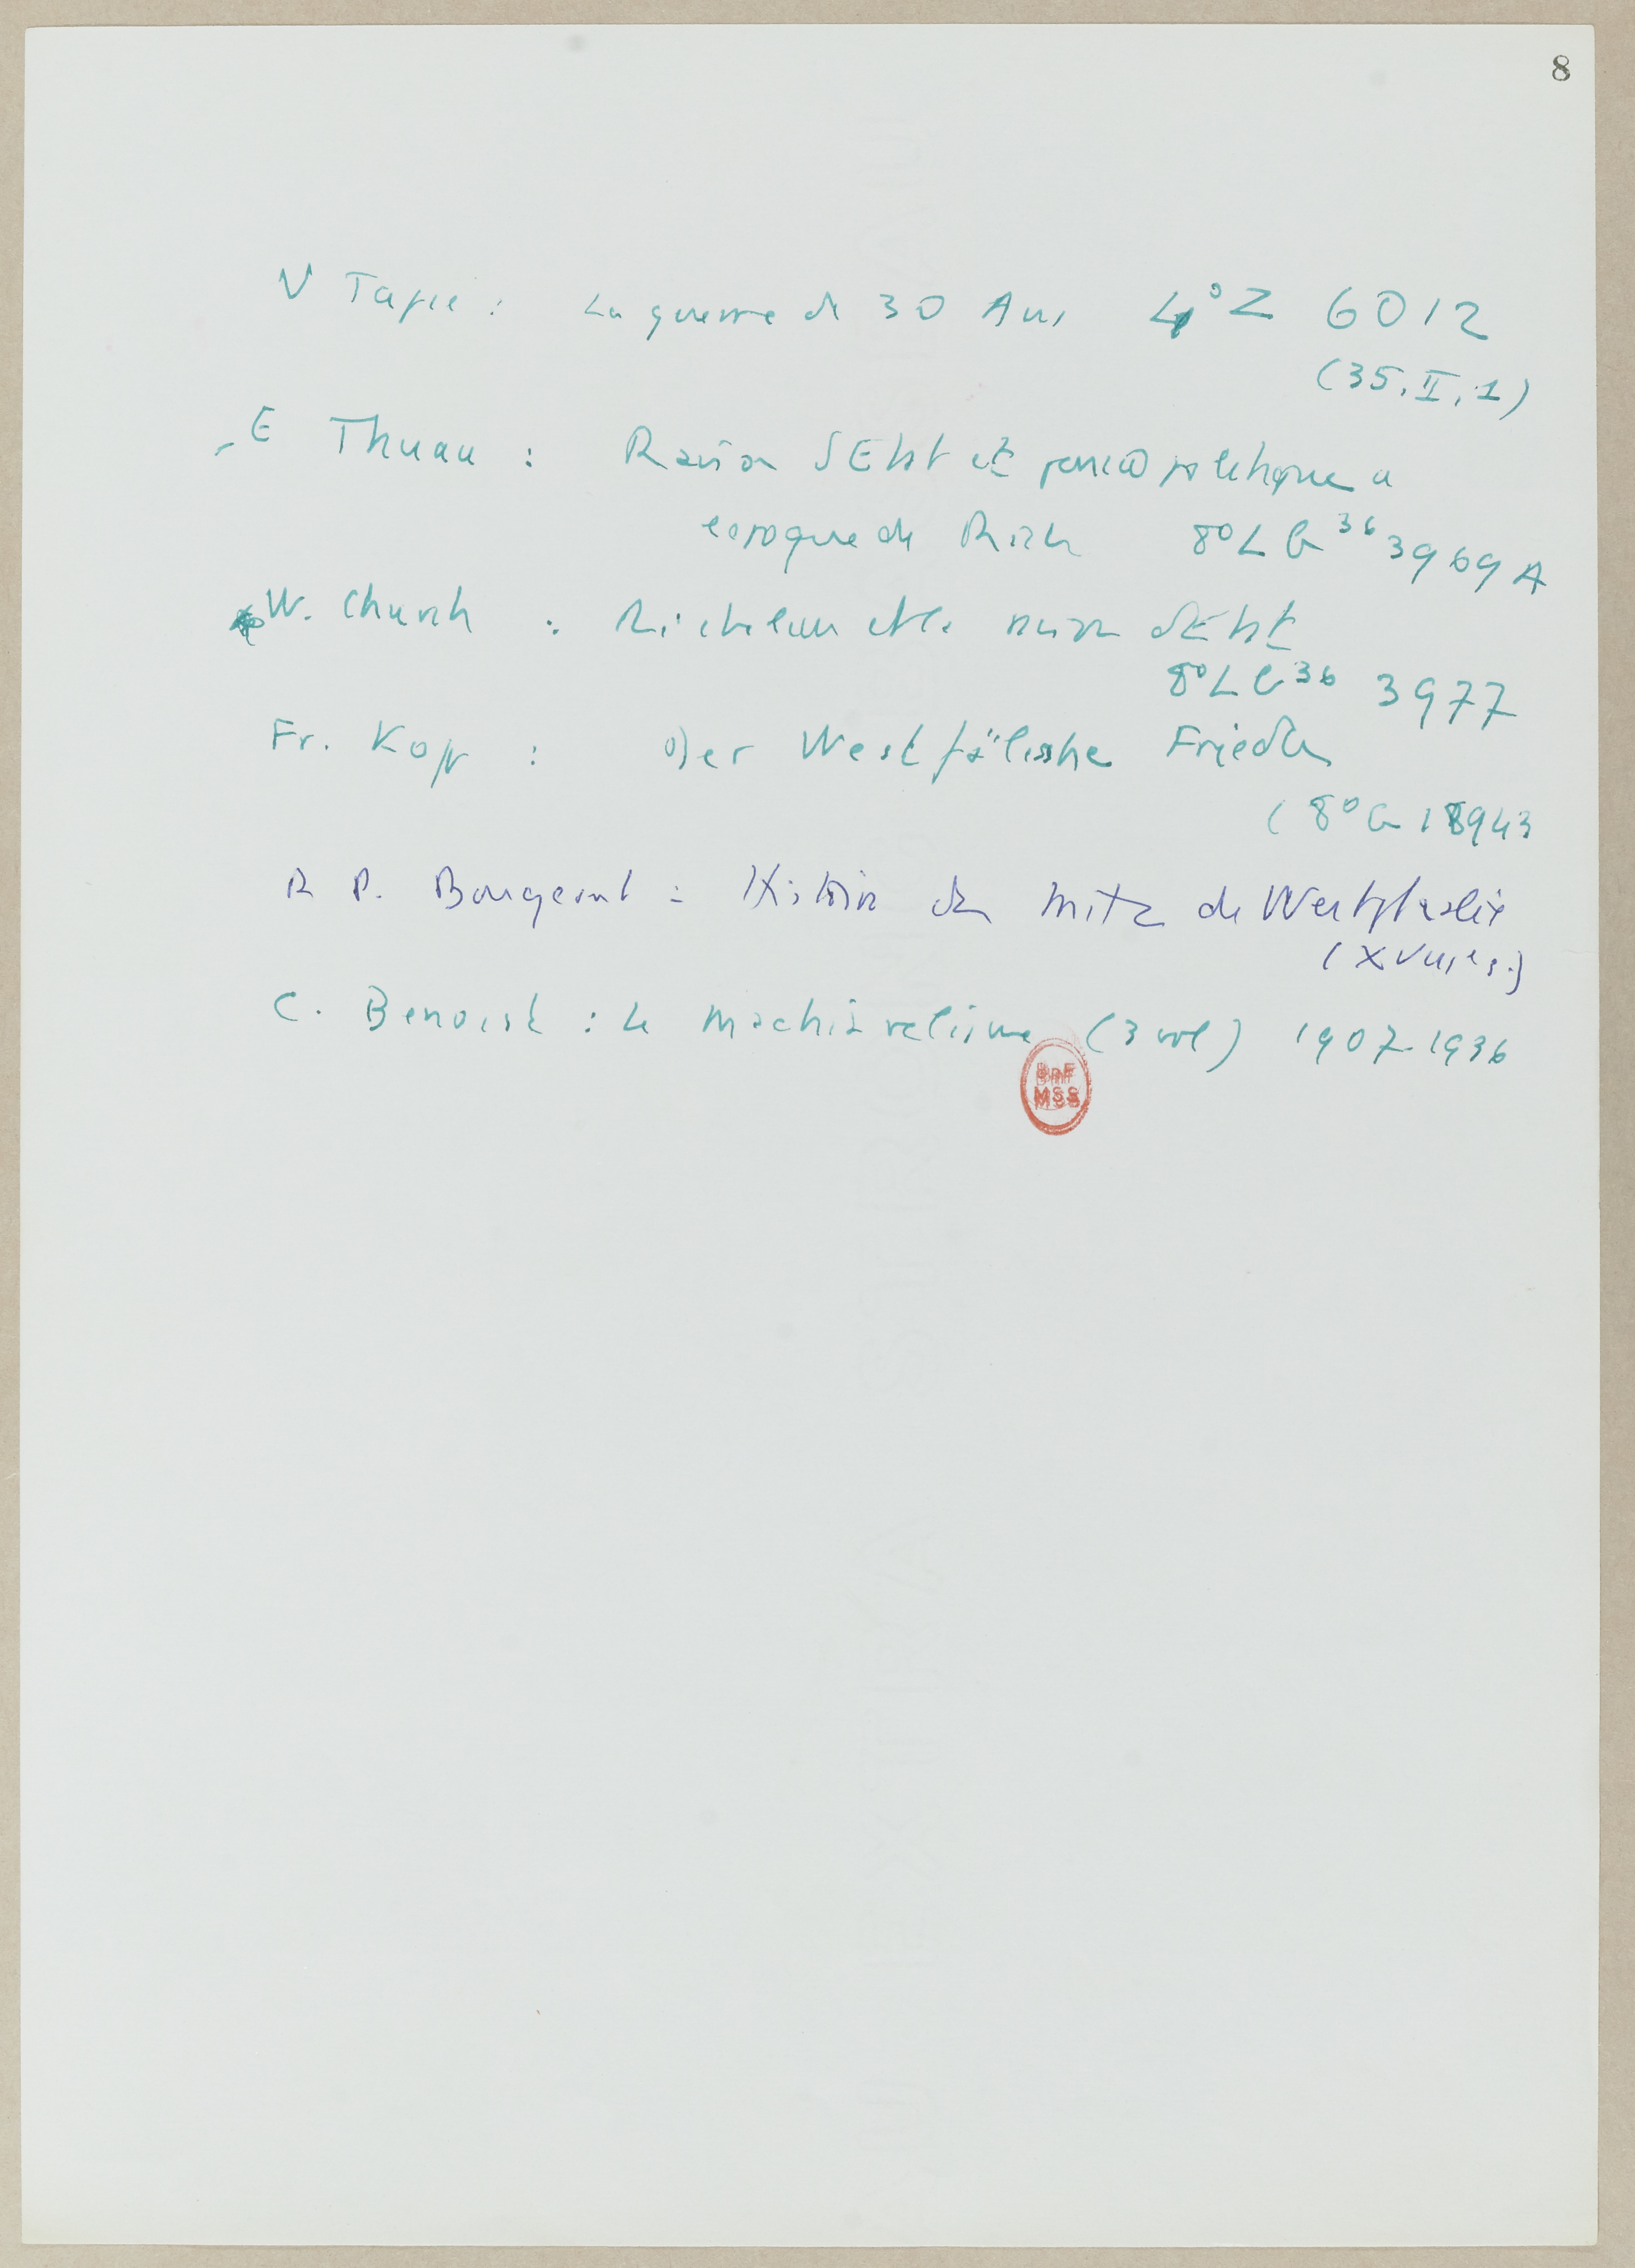 8
V Tapié : La guerre de 30 Ans 4° Z 6012
(35. II. 1)
- E Thuau : Raison d'Etat et pensée politique a
epoque de Rich 8° LB 36 3969 A
W. Church : Richelieu et la raison d'Etat
8° LB 36 3977
Fr. Kopp : Der Westfälische Frieden
(8° G 18943
R P. Bougeant : Histoire des traités de Westphalie
(XVIIIe s.)
C. Benoist : Le machiavelisme (3 vol) 1907-1936
BnF
MSS